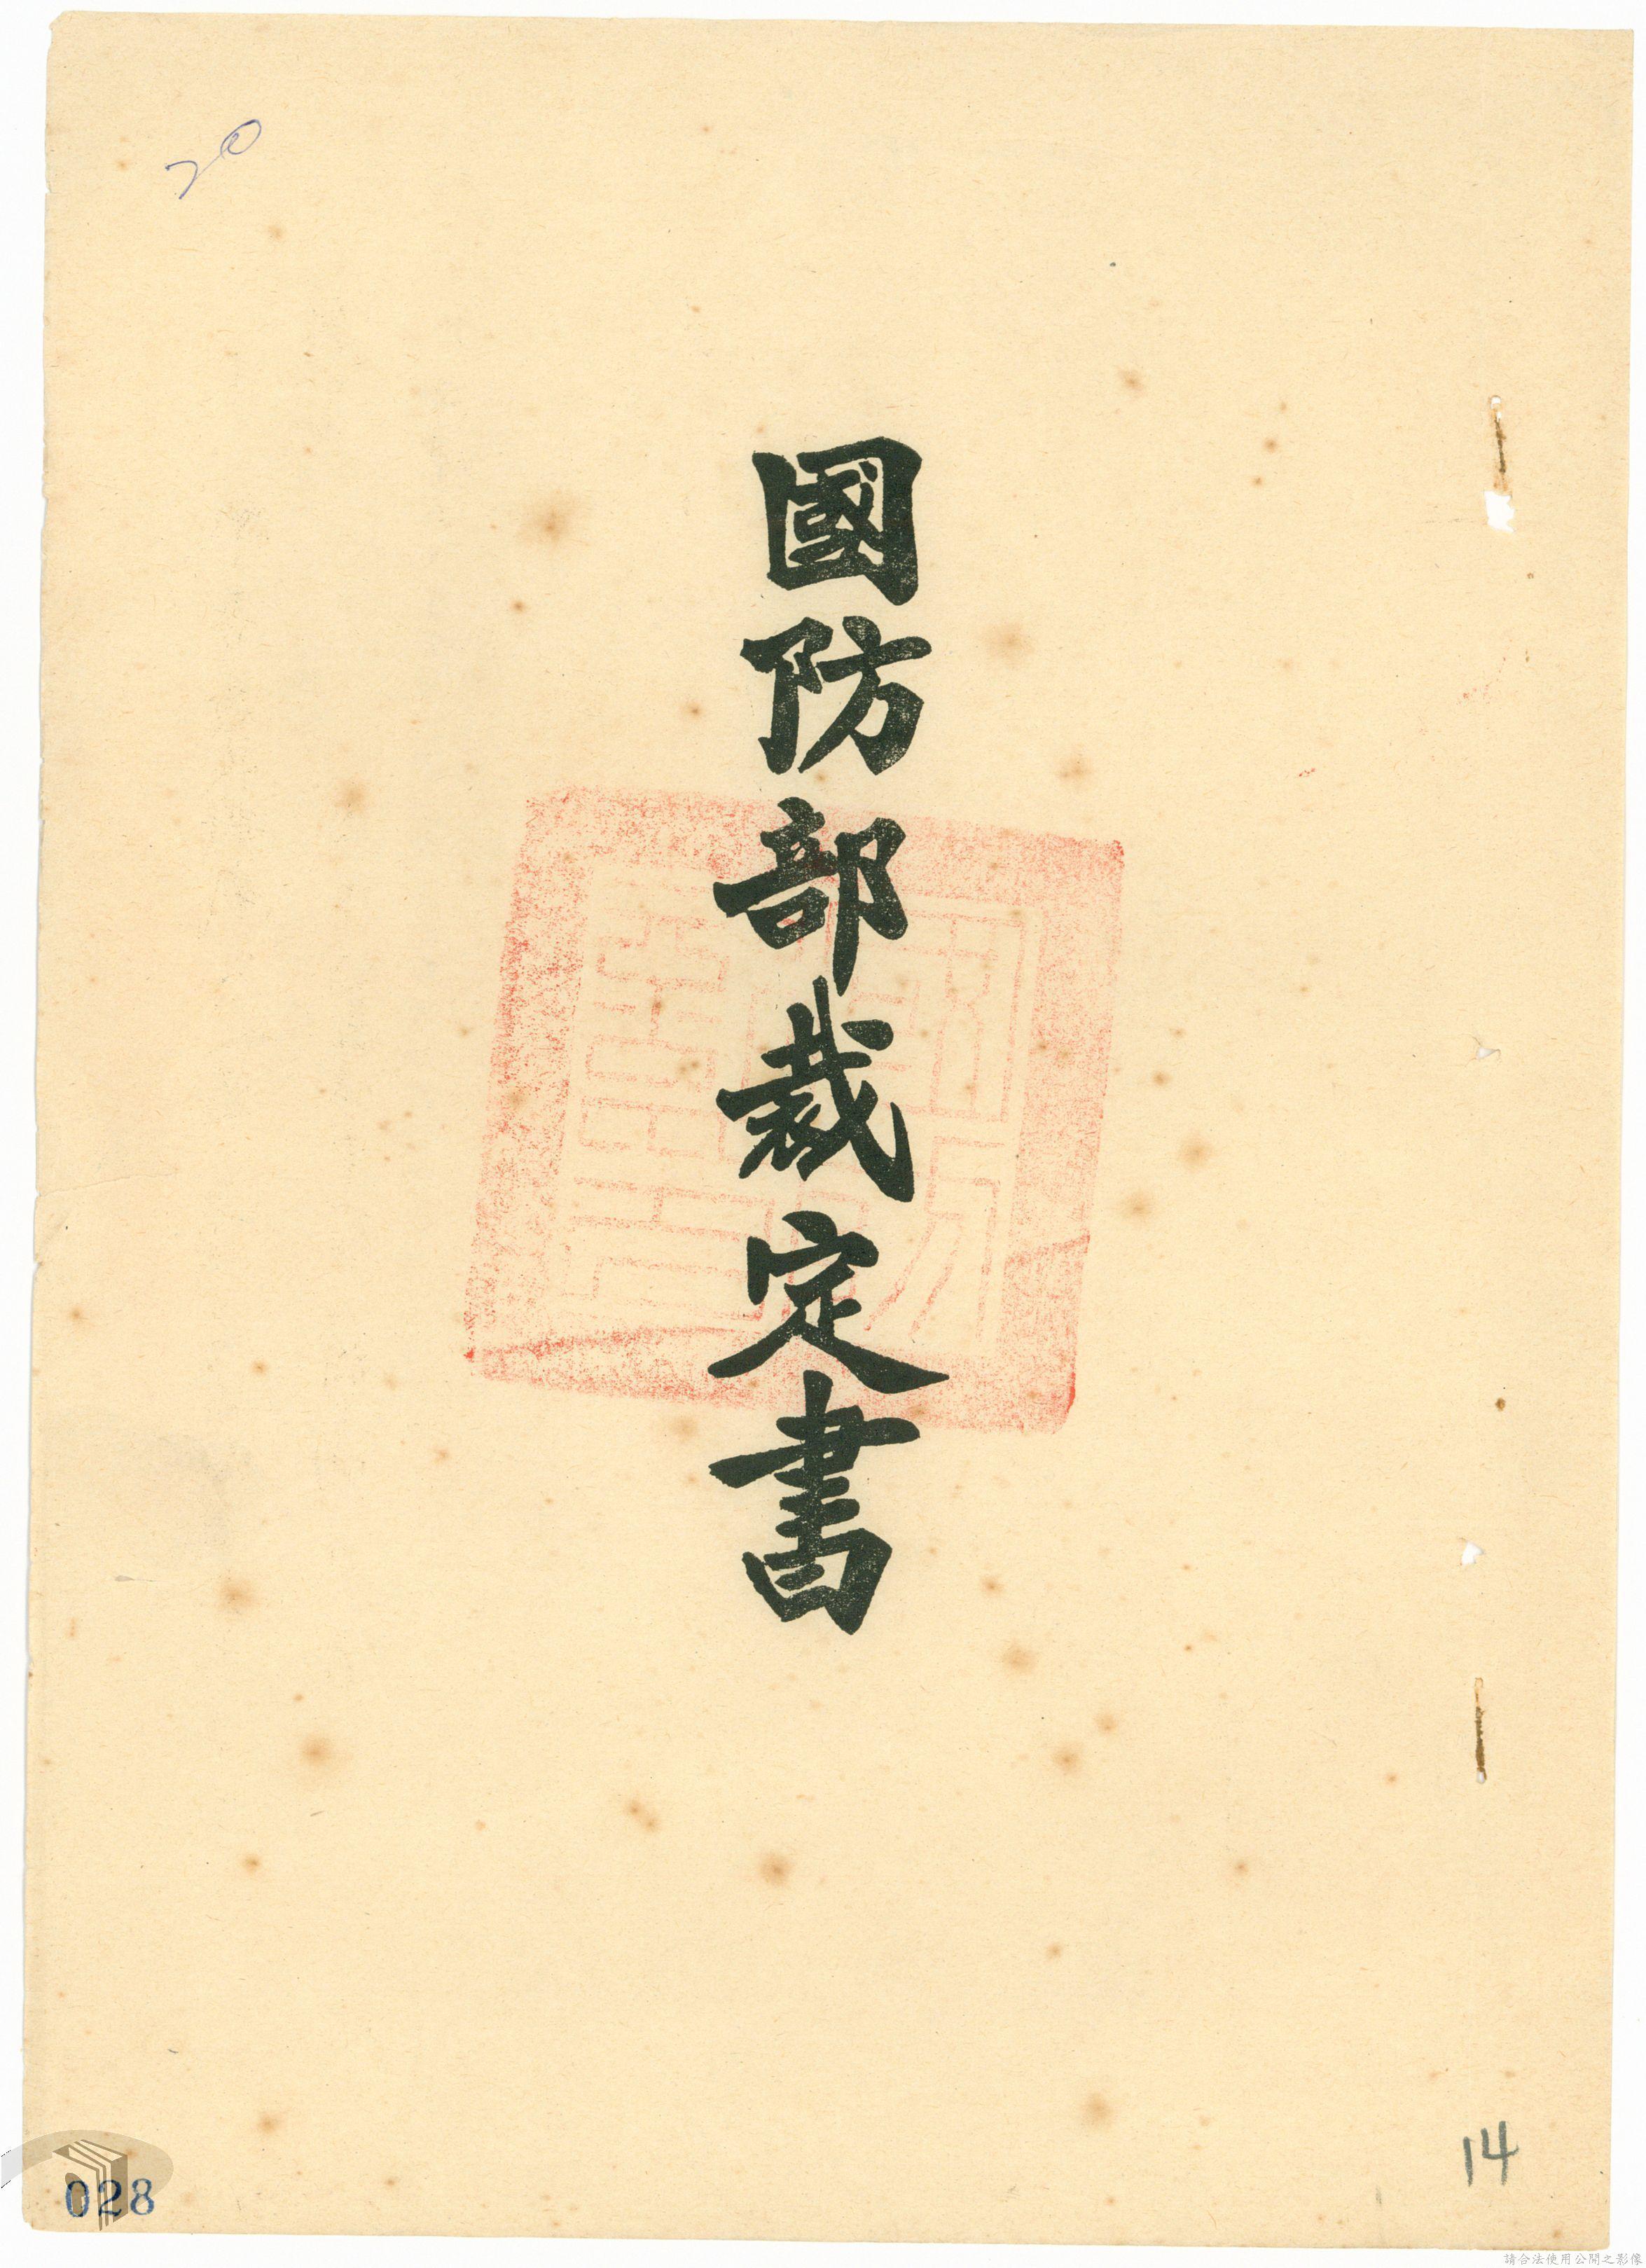 20
國防部裁定書
14
028
請合法使用公開之影像